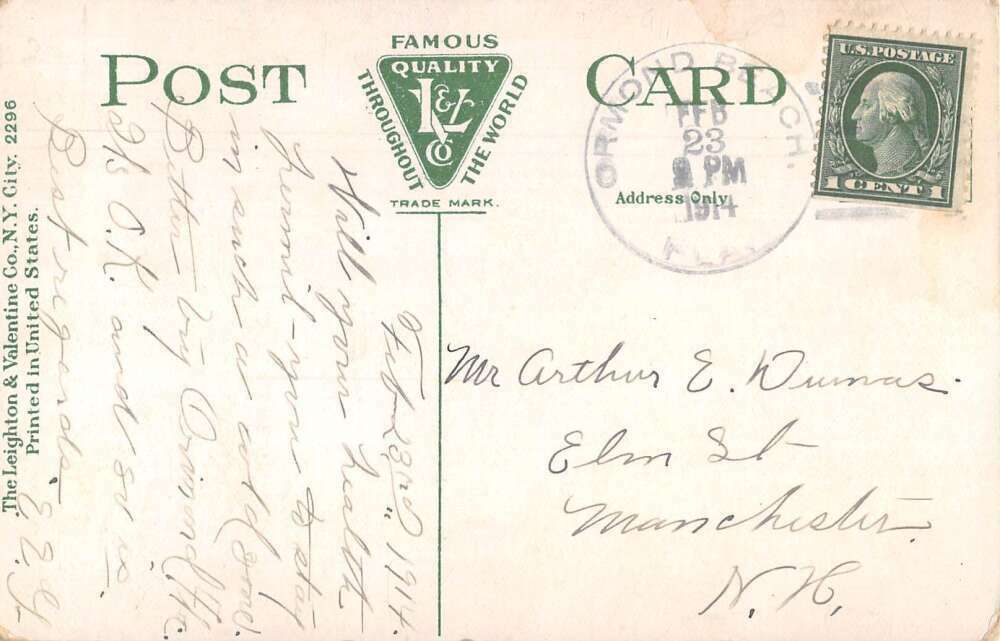 POST CARD
FAMOUS
QUALITY
THROUGHOUT
THE WORLD
L&V
Co
TRADE MARK.
Address Only.
ORMOND BEACH.
FEB
23
PM
1914
FLA.
U.S. POSTAGE
1 CENT 1
The Leighton & Valentine Co., N.Y. City. 2296
Printed in United States.
Feb 23rd" 1914.
Will your health
permit - you to stay
in such a cold zone.
Better try Ormond Fla.
It's O.K. and so is
Best regards.
Mr Arthur E. Dumas.
Elm St
Manchester
N. H.